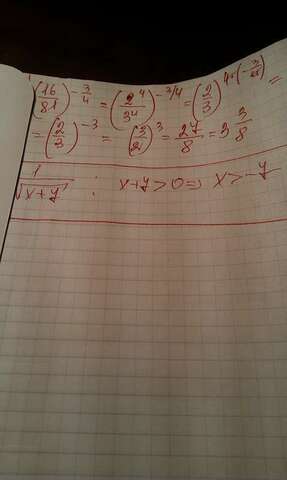 (16/81)^(-3/4) = (2^4/3^4)^(-3/4) = (2/3)^(4·(-3/4)) =
= (2/3)^(-3) = (3/2)^3 = 27/8 = 3 3/8
1/√(x+y) : x+y>0 ⇒ x>-y